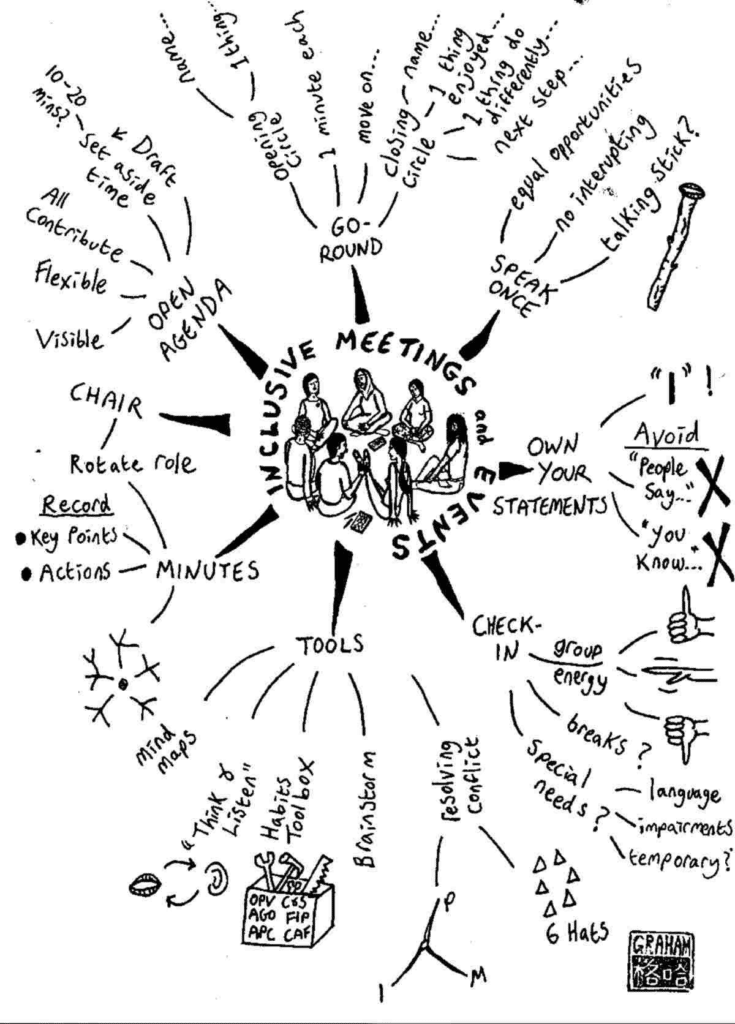 INCLUSIVE MEETINGS
and EVENTS
GO-
ROUND
Opening
Circle
name...
1 thing...
1 minute each
move on...
closing
Circle
name...
1 thing
enjoyed...
1 thing do
differently...
next step...
SPEAK
ONCE
equal opportunities
no interupting
talking stick?
OWN
YOUR
STATEMENTS
"I"!
Avoid
"People
Say..."
"You
Know..."
CHECK-
IN
group
energy
breaks?
Special
needs?
language
impairments
temporary?
TOOLS
resolving
Conflict
6 Hats
P
M
I
Brainstorm
Habits
Toolbox
OPV C&S
AGO FIP
APC CAF
"Think &
Listen"
Mind
Maps
MINUTES
Record
• Key Points
• Actions
Rotate role
CHAIR
OPEN
AGENDA
Visible
Flexible
All
Contribute
Set aside
time
10-20
mins?
Draft
GRAHAM
格哈